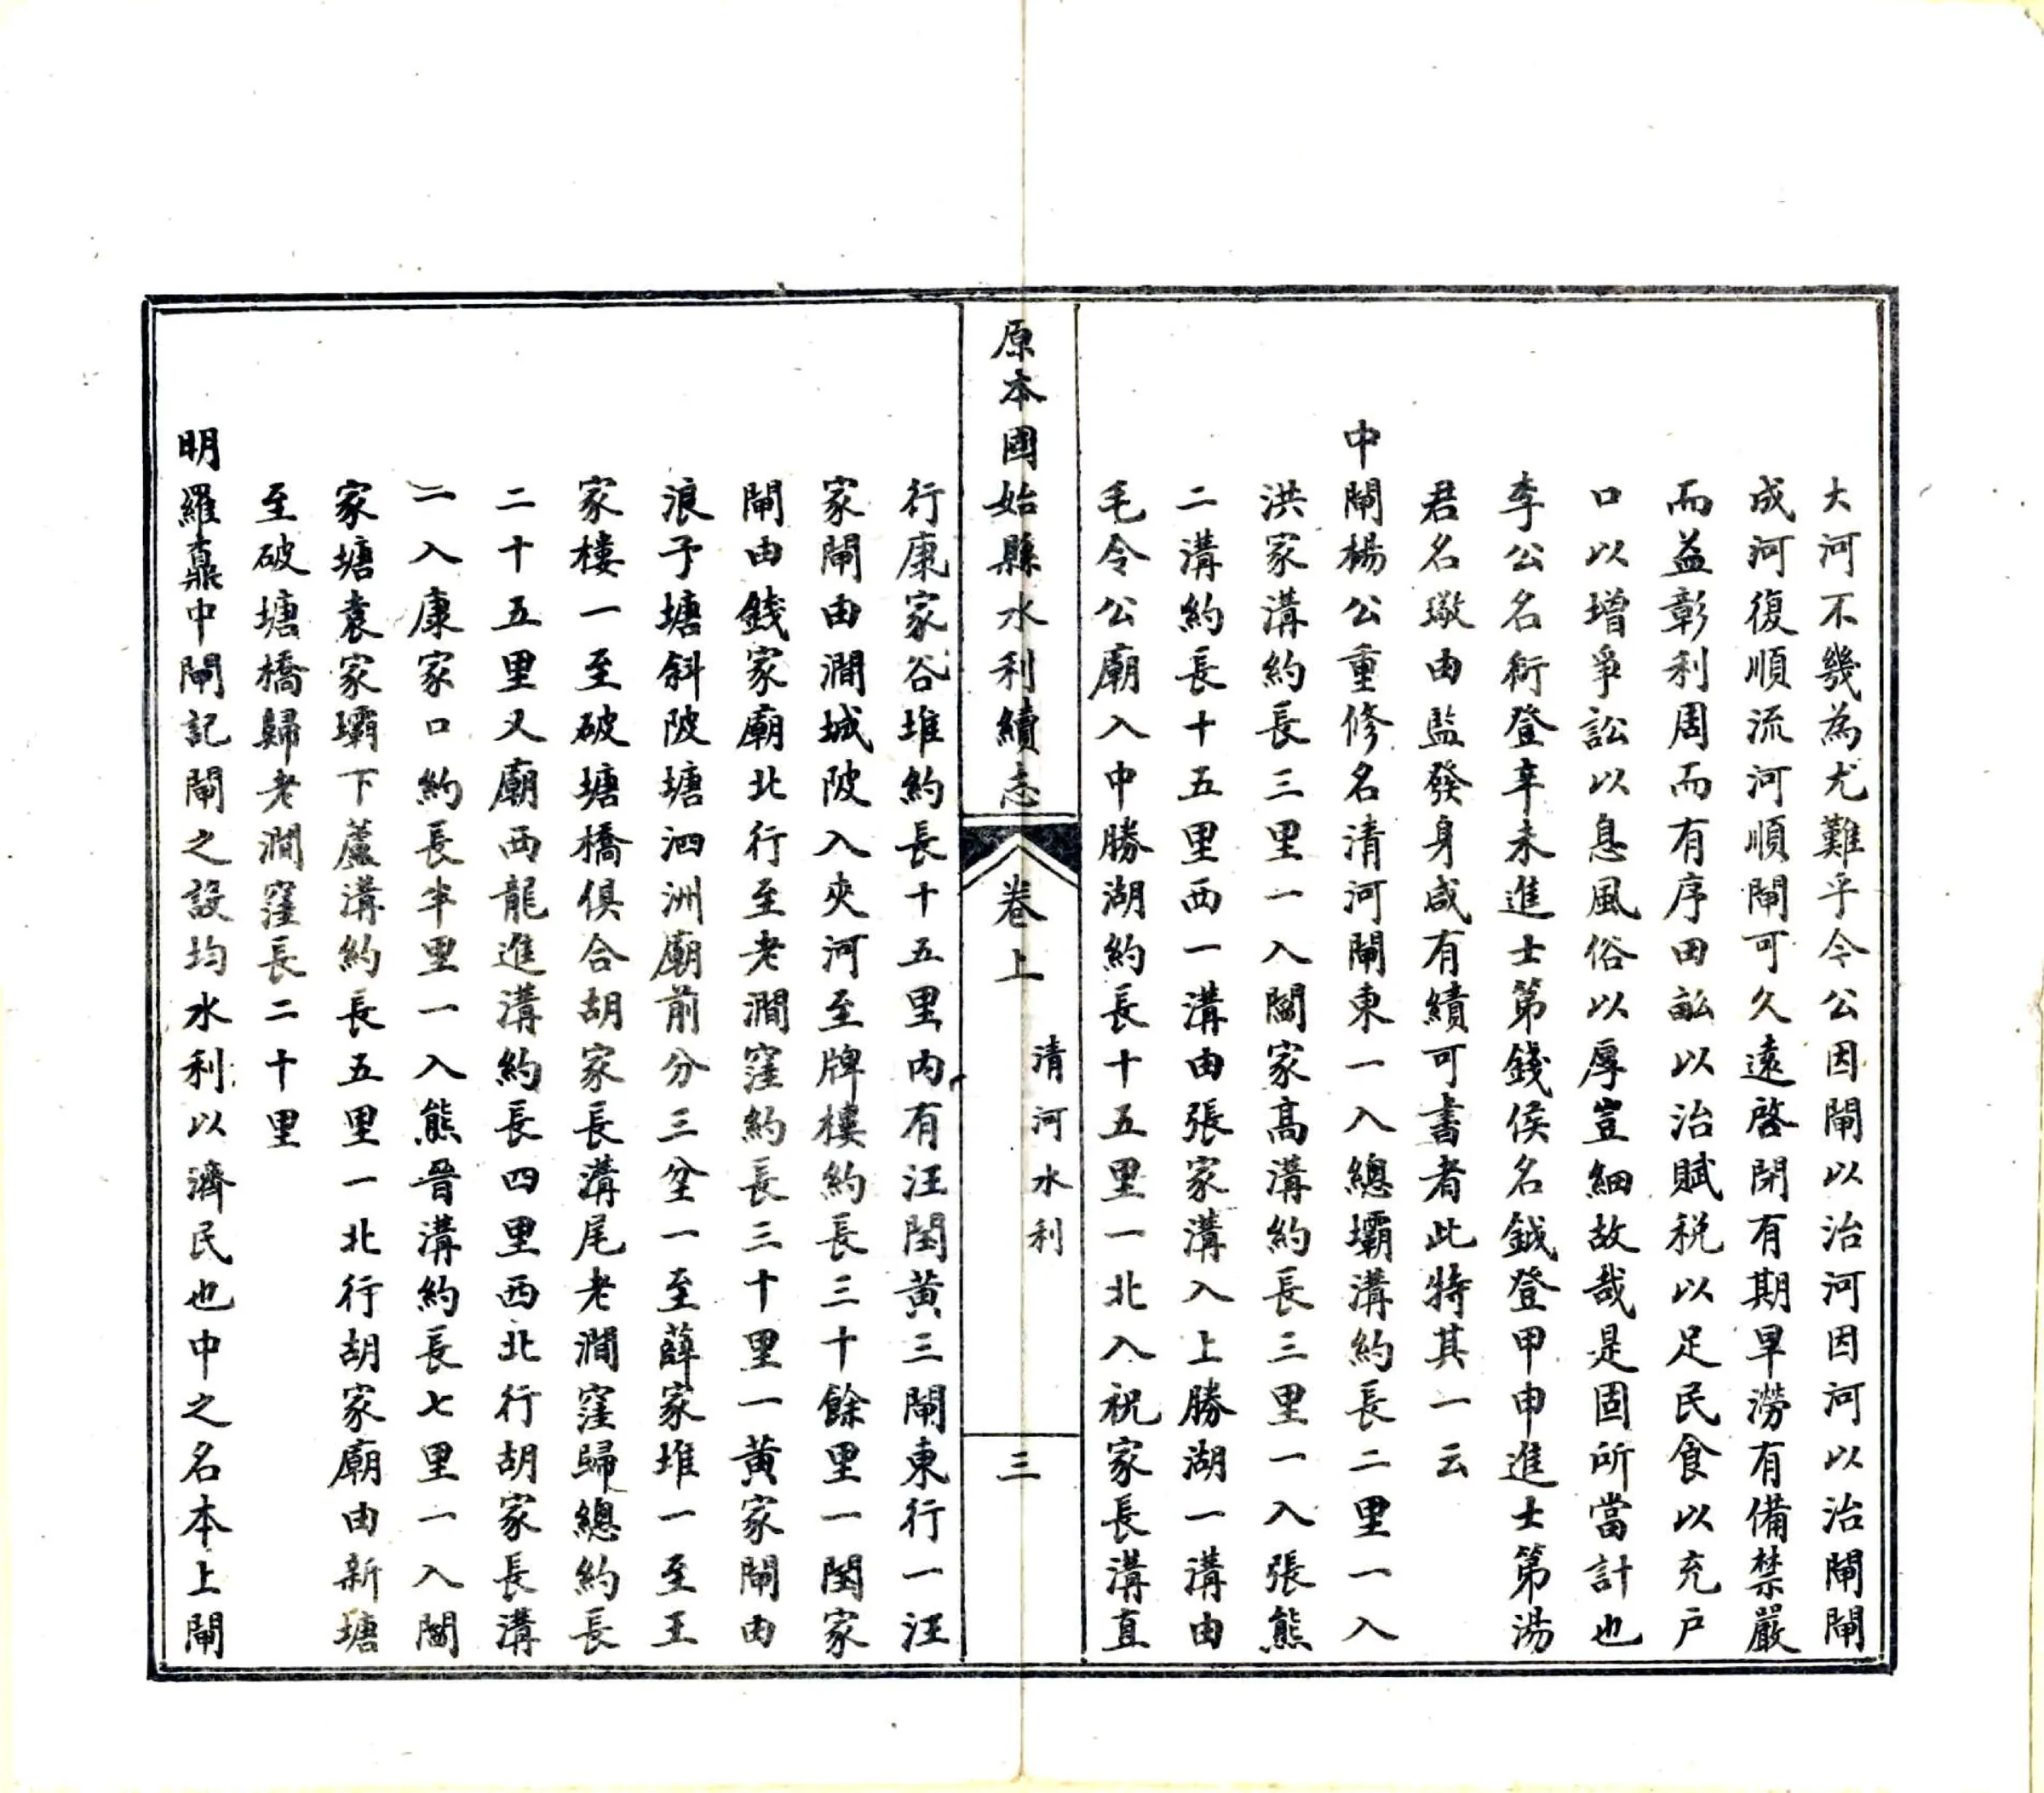 大河不幾為尤難乎今公因閘以治河因河以治閘閘
成河復順流河順閘可久遠啓閉有期旱澇有備禁嚴
而益彰利周而有序田畝以治賦税以足民食以充户
口以增爭訟以息風俗以厚豈細故哉是固所當計也
李公名衍登辛未進士第錢侯名鉞登甲申進士第湯
君名璥由監發身咸有績可書者此特其一云
中閘楊公重修名清河閘東一入總壩溝約長二里一入
洪家溝約長三里一入闞家高溝約長三里一入張熊
二溝約長十五里西一溝由張家溝入上勝湖一溝由
毛令公廟入中勝湖約長十五里一北入祝家長溝直
原本固始縣水利續志
卷上
清河水利
三
行康家谷堆約長十五里内有汪閏黃三閘東行一汪
家閘由澗城陂入夾河至牌樓約長三十餘里一閏家
閘由錢家廟北行至老澗窪約長三十里一黃家閘由
浪子塘斜陂塘泗洲廟前分三坌一至薛家堆一至王
家樓一至破塘橋俱合胡家長溝尾老澗窪歸總約長
二十五里又廟西龍進溝約長四里西北行胡家長溝
一入康家口約長半里一入熊晉溝約長七里一入闞
家塘袁家壩下蘆溝約長五里一北行胡家廟由新塘
至破塘橋歸老澗窪長二十里
明羅鼒中閘記閘之設均水利以濟民也中之名本上閘